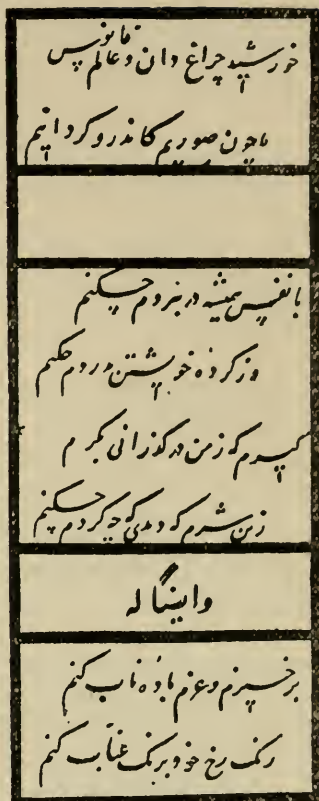 خورشید چراغ دان و عالم فانوس
ما چون صوریم کاندرو گردانیم
با نفس همیشه در نبردم چکنم
وز کرده خویشتن بدردم چکنم
گیرم که ز من در گذرانی بکرم
زین شرم که دیدی که چه کردم چکنم
و اینگاله
برخیزم و عزم باده ناب کنم
رنگ رخ خود برنگ عناب کنم